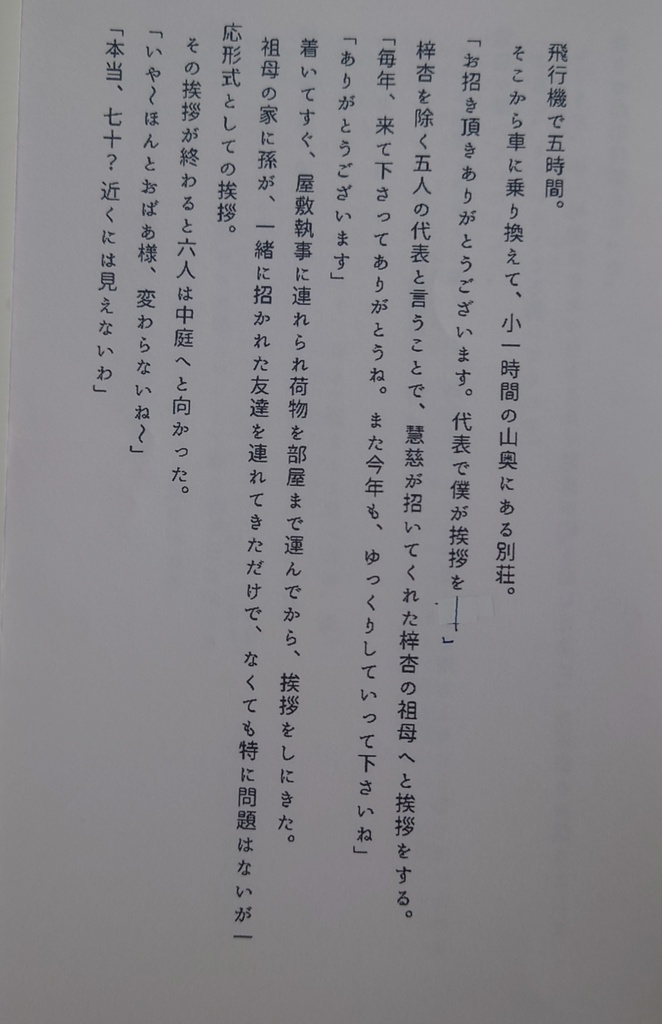 飛行機で五時間。
そこから車に乗り換えて、小一時間の山奥にある別荘。
「お招き頂きありがとうございます。代表で僕が挨拶を―」
梓杏を除く五人の代表と言うことで、慧慈が招いてくれた梓杏の祖母へと挨拶をする。
「毎年、来て下さってありがとうね。また今年も、ゆっくりしていって下さいね」
「ありがとうございます」
着いてすぐ、屋敷執事に連れられ荷物を部屋まで運んでから、挨拶をしにきた。
祖母の家に孫が、一緒に招かれた友達を連れてきただけで、なくても特に問題はないが一
応形式としての挨拶。
その挨拶が終わると六人は中庭へと向かった。
「いや〜ほんとおばあ様、変わらないね〜」
「本当、七十？近くには見えないわ」